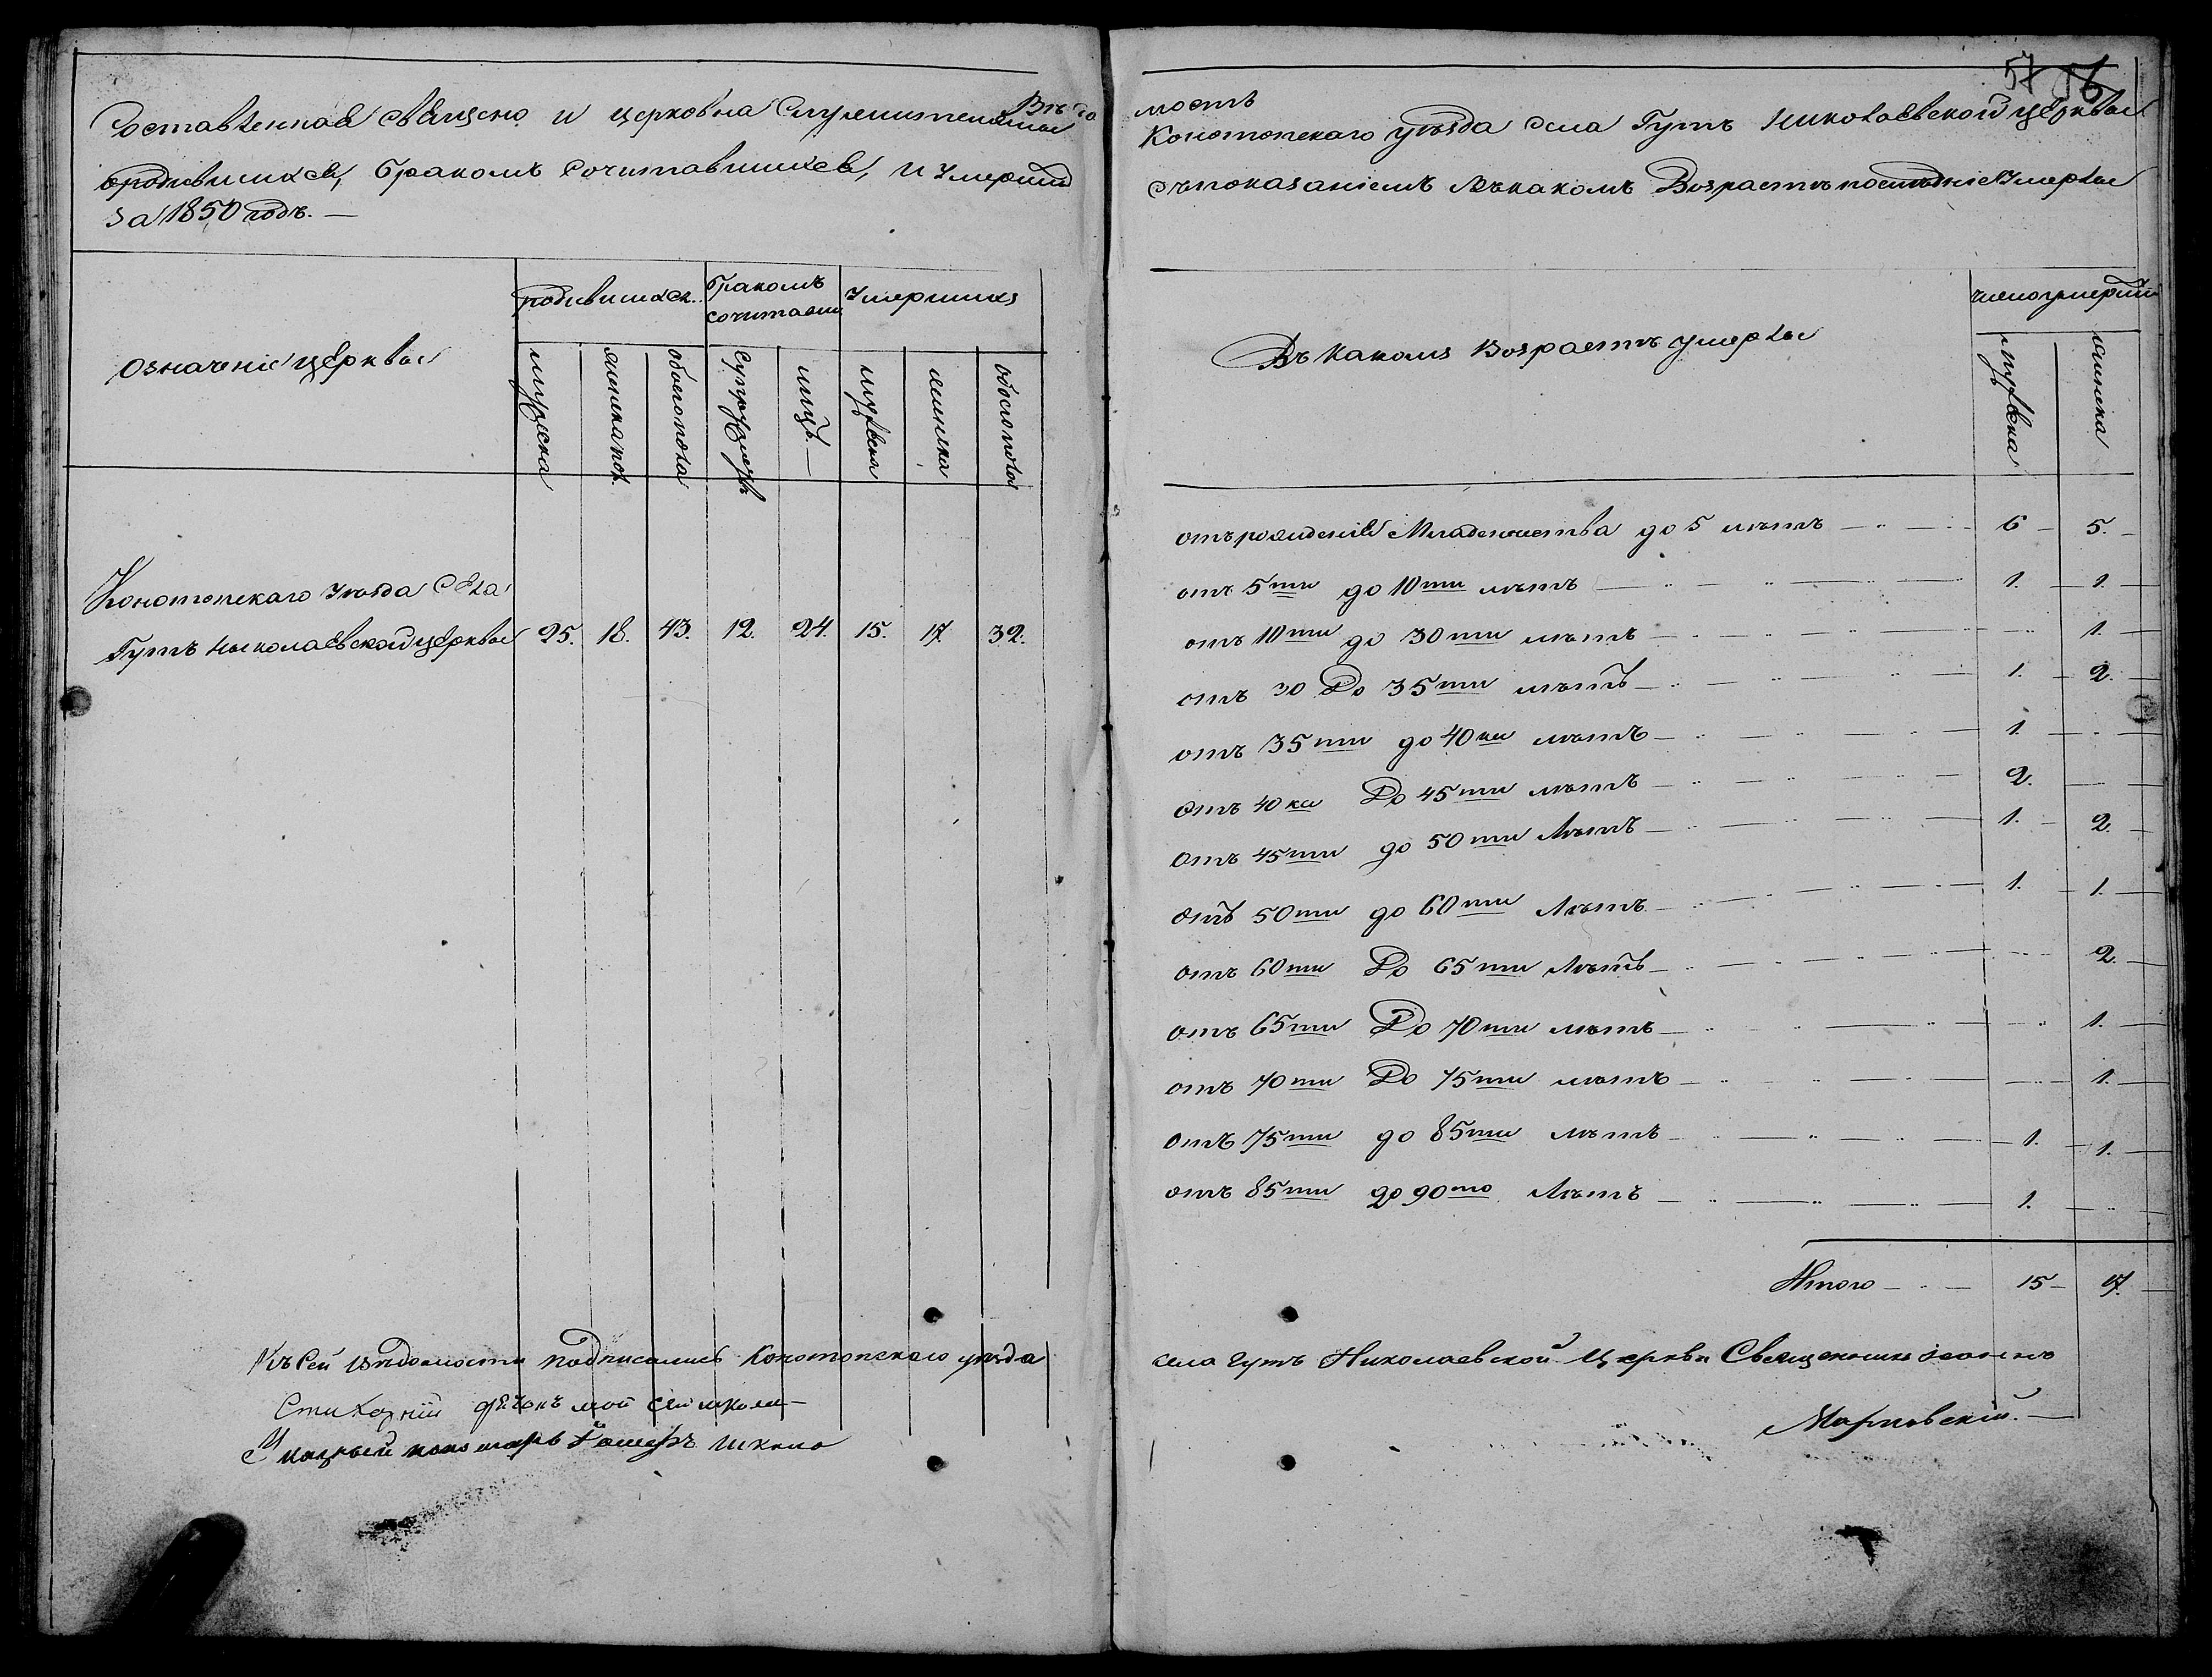 57 56
Вѣдо
Составленная священо и церковна служителями
о родившихся, бракомъ сочитавшихся, и умерших
за 1850 годъ. —
Означеніе церквы
родившихся
бракомъ
сочитавши
умершихъ
мужеска
женска пол.
обоего пола
супружествъ
лицъ —
мужеска
женска
обоего пола
Конотопскаго уѣзда села
Гутъ Николаевской церквы 25. 18. 43. 12. 24. 15. 17. 32.
Къ сей вѣдомости подписались Конотопскаго уѣзда
Стихарній
Указный пономарь
мость
Конотопскаго уѣзда села Гутъ Николаевской церквы
съ показаніемъ въ какомъ возрастѣ послѣдніе умерлы
Въ какомъ возрастѣ умерлы
число умерших
мужеска
женска
отъ рожденія младенчества до 5 лѣтъ — 6 — 5. —
отъ 5ти до 10ти лѣтъ — 1. — 1. —
отъ 10ти до 30ти лѣтъ — 1. —
отъ 30 до 35ти лѣтъ — 1. — 2. —
отъ 35ти до 40ка лѣтъ — 1 —
отъ 40ка до 45ти лѣтъ — 2. —
отъ 45ти до 50ти лѣтъ — 1. — 2. —
отъ 50ти до 60ти лѣтъ — 1. — 1. —
отъ 60ти до 65ти лѣтъ — 2. —
отъ 65ти до 70ти лѣтъ — 1. —
отъ 70ти до 75ти лѣтъ — 1. —
отъ 75ти до 85ти лѣтъ — 1. — 1. —
отъ 85ти до 90то лѣтъ — 1. —
Итого — 15 — 17. —
села Гутъ Николаевской Церкви Священникъ Іоаннъ
Марковскій. —